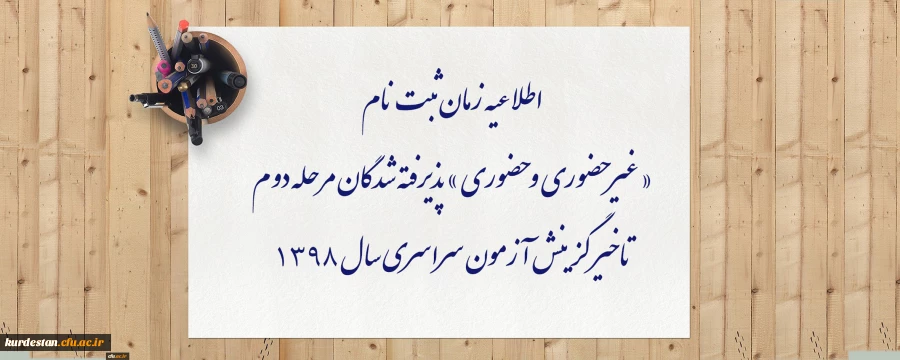 اطلاعیه زمان ثبت نام
« غیرحضوری و حضوری » پذیرفته شدگان مرحله دوم
تاخیر گزینش آزمون سراسری سال ۱۳۹۸
kurdestan.cfu.ac.ir
cfu.ac.ir